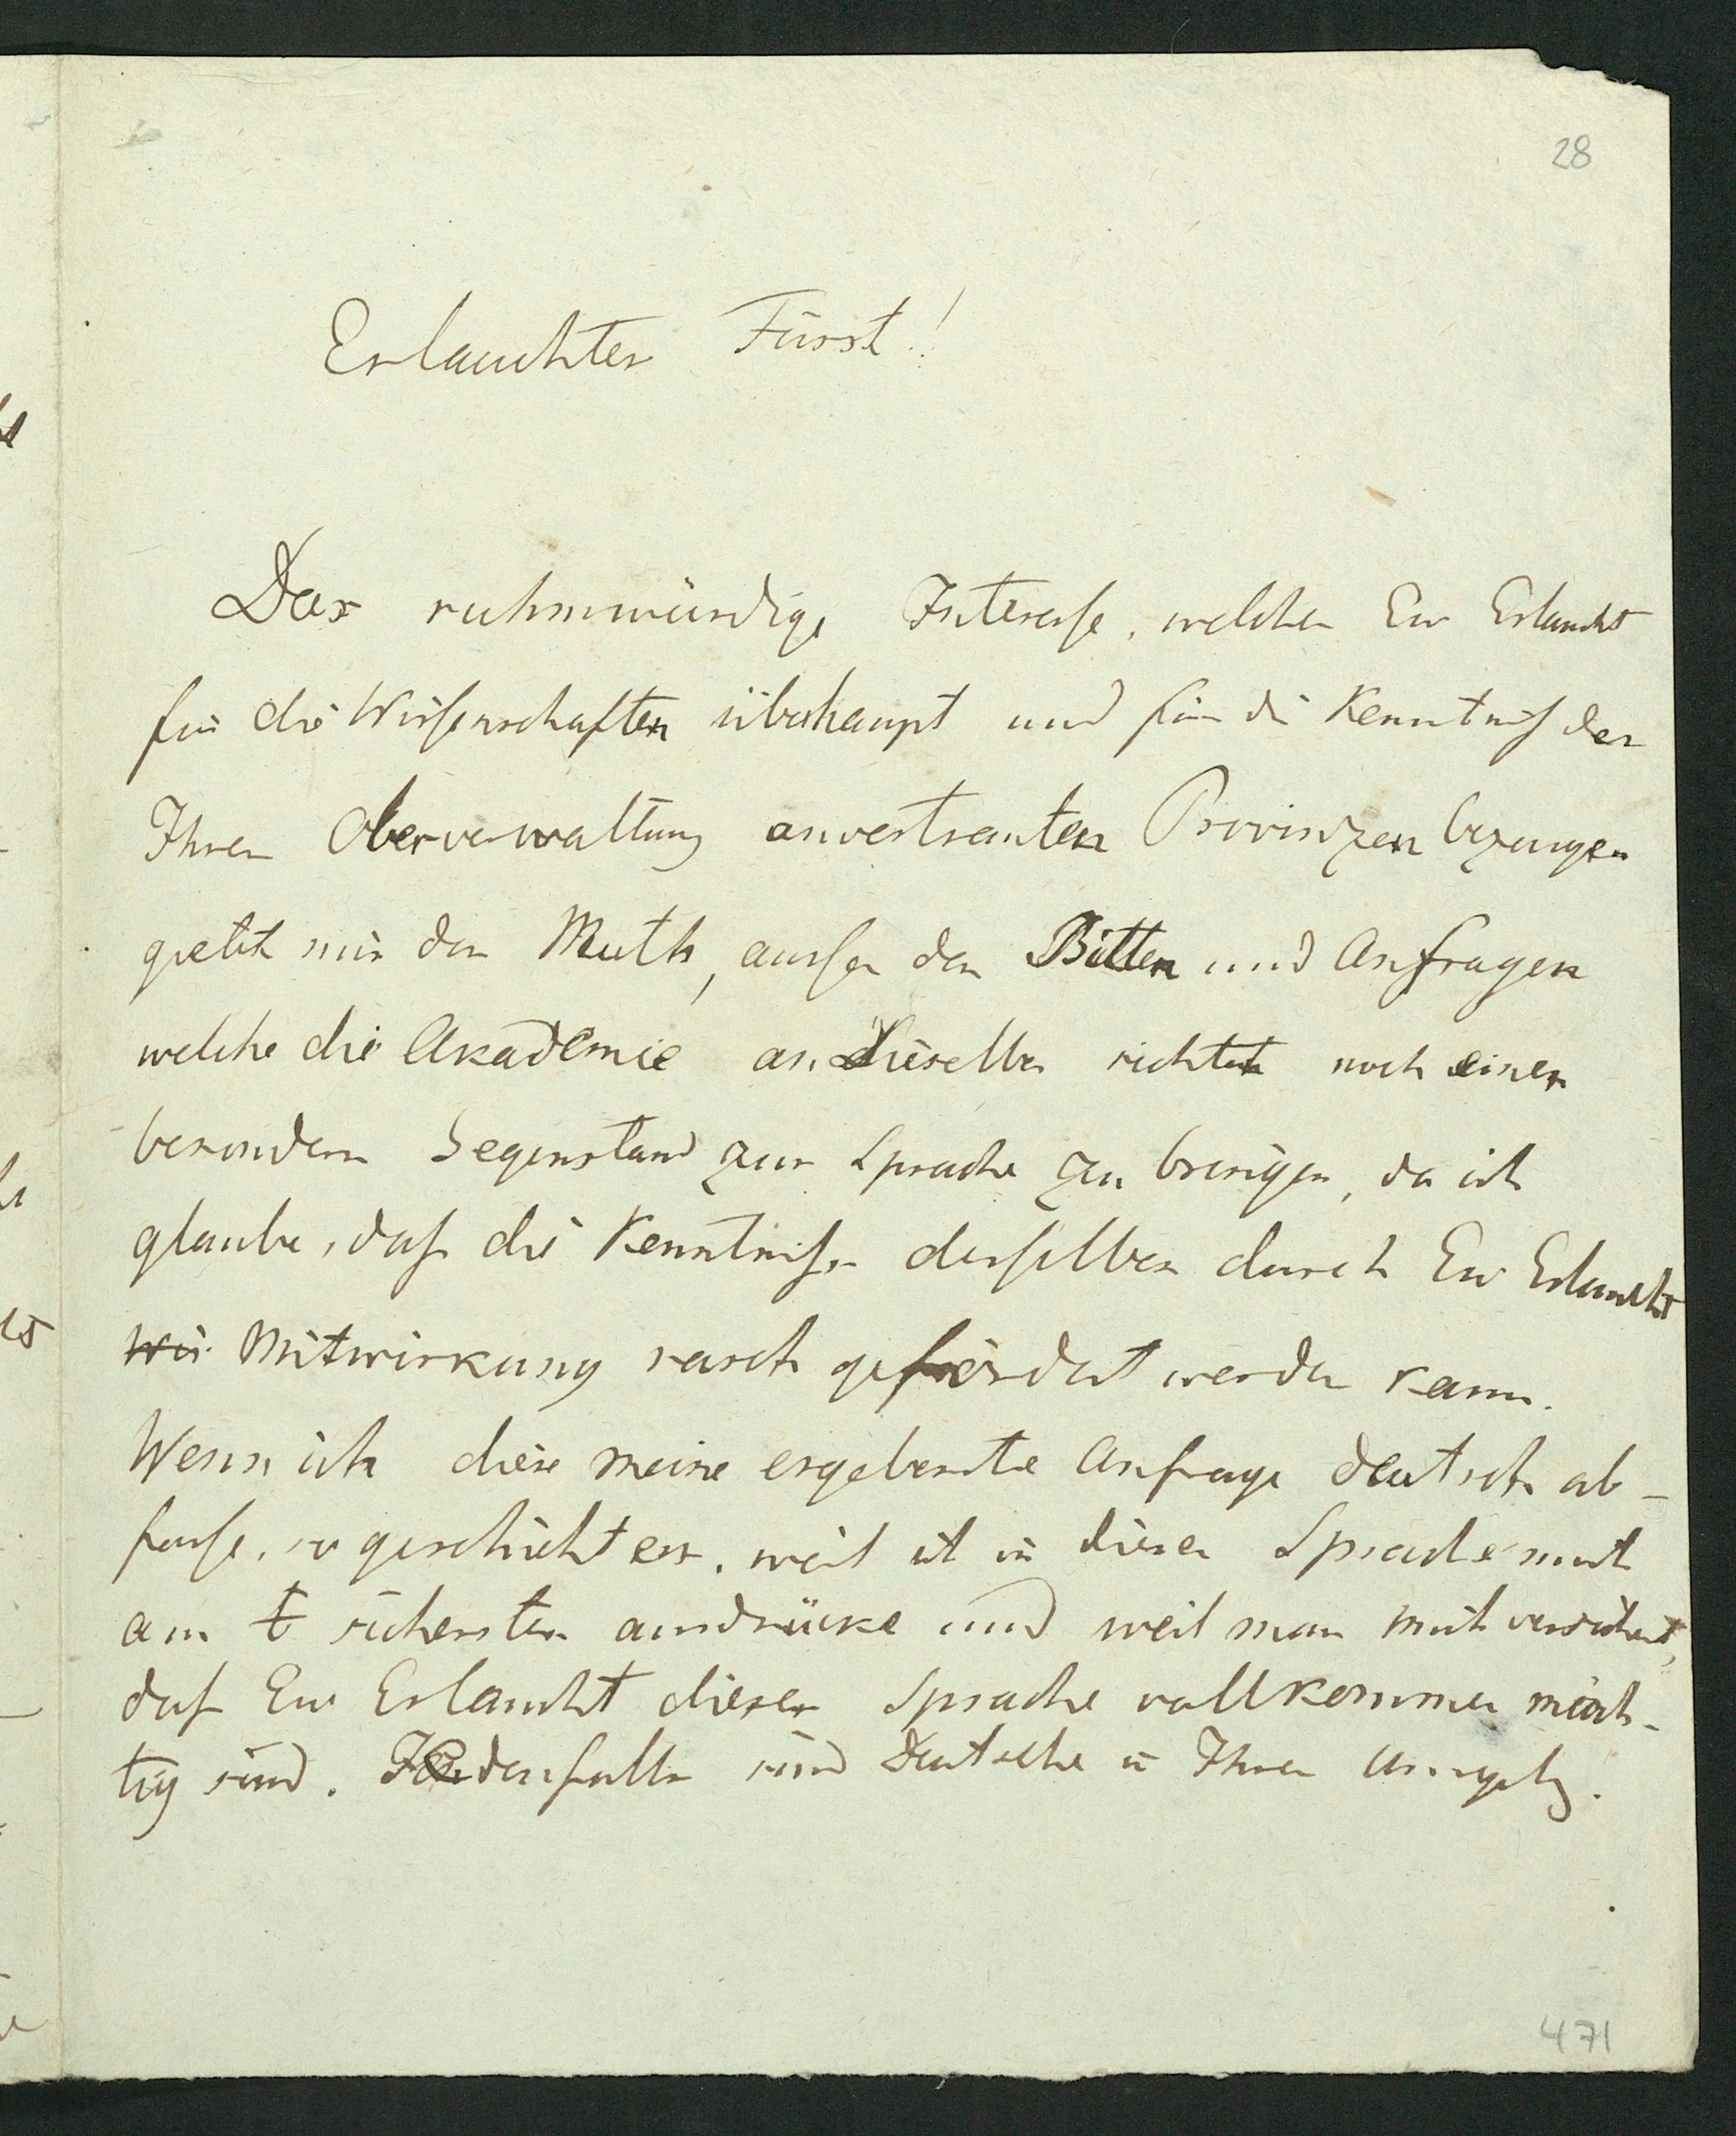 28
Erlauchter Fürst!
Das ruhmwürdige Interesse, welches Ew Erlaucht
für die Wissenschaften überhaupt und für die Kenntniß der
Ihrer Oberverwaltung anvertrauten Provinzen bezeugen
giebt mir den Muth, außer den Bitten und Anfragen
welche die Akademie an Dieselben richtet noch einen
besondern Gegenstand zur Sprache zu bringen, da ich
glaube, daß die Kenntniß desselben durch Ew Erlaucht
Wir Mitwirkung rasch gefördert werden kann.
Wenn ich diese meine ergebenste Anfrage deutsch ab-
fasse, so geschieht es, weil ich in dieser Sprache mich
am t sichersten ausdrücke und weil man mich versichert,
daß Ew Erlaucht dieser Sprache vollkommen mäch-
tig sind. Jedenfalls sind Deutsche in Ihrer Umgebg.
471